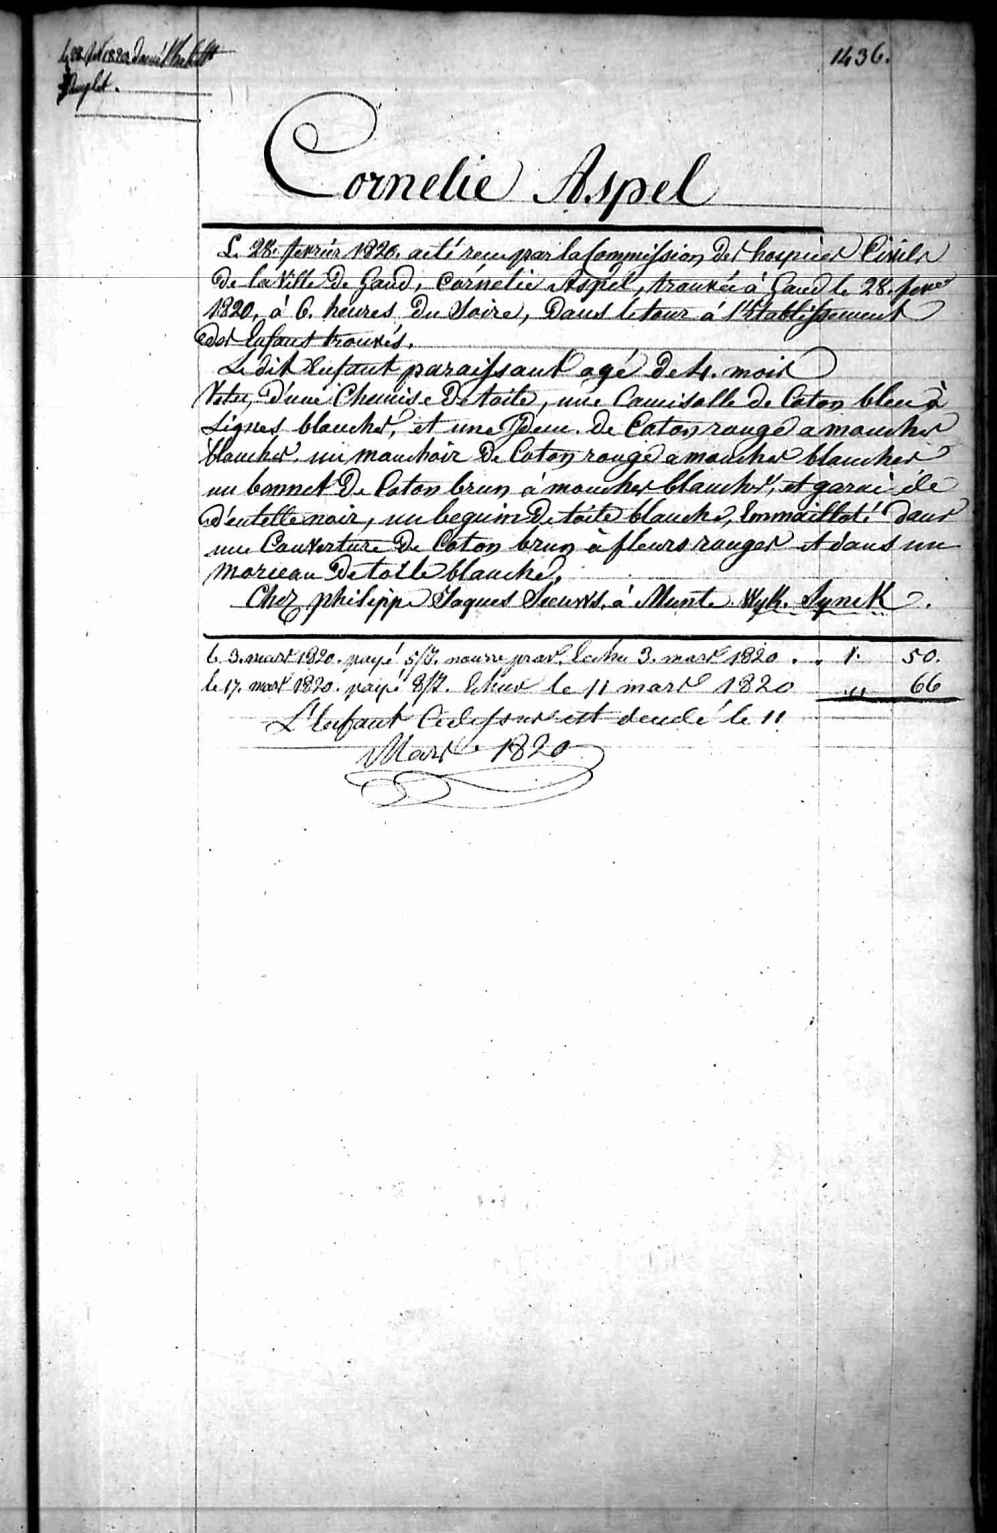 1436.
le 28 fev 1820 donné l'habill
complet.
Cornelie Aspel
Le 28. fevrier 1820. a eté recu par la Commission des hospices Civils
de la Ville de Gand, Cornelie Aspel, trouvée à Gand le 28. fevr
1820, à 6. heures du Soire, dans le tour à l'Etablissement
des Enfans trouvés.
Le dit Enfant paraissant agé de 4. mois
Vetu, d'une Chemise de toile, une Camisolle de Coton bleu à
Lignes blanches, et une Idem. de Coton rouge a mouches
blanches. un mouchoir de Coton rouge a mouches blanches
un bonnet de Coton brun à mouches blanches, et garni de
d'entelle noir, un beguin de toile blanche, Emmailloté dans
une Couverture de Coton brun à fleurs rouges et dans un
morceau de toile blanche.
Chez philippe Jaques à Munte. Wyk. Synck.
le 3. mars 1820. payé 5/7. nourre prov. Echu 3. mars 1820 . . 1. 50.
le 17. mars 1820. payé 8/7. Echus le 11 mars 1820 " 66
L'Enfant Cidessus est decedé le 11
Mars 1820